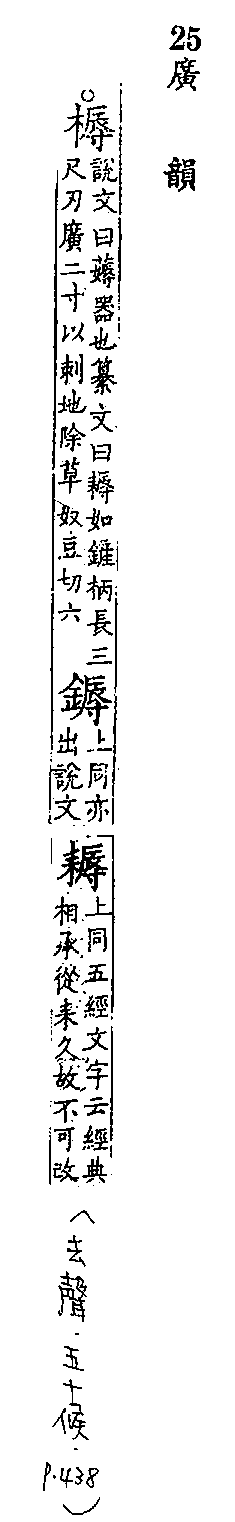 25
廣韻
○槈說文曰薅器也纂文曰耨如鏟柄長三
尺刃廣二寸以刺地除草奴豆切六
鎒上同亦
出說文
耨上同五經文字云經典
相承從耒久故不可改
(去聲.五十候.
p.438)